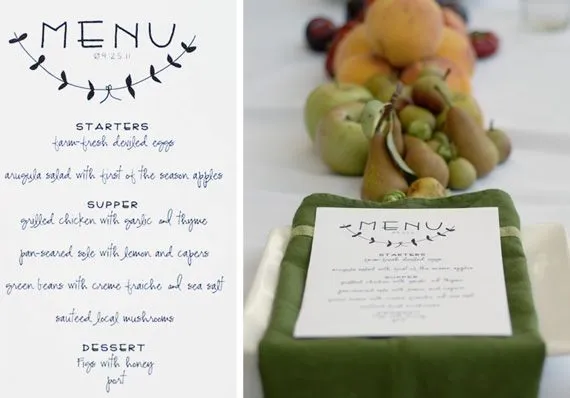 MENU
09.25.11
STARTERS
farm-fresh deviled eggs
arugula salad with first of the season apples
SUPPER
grilled chicken with garlic and thyme
pan-seared sole with lemon and capers
green beans with creme fraiche and sea salt
sauteed local mushrooms
DESSERT
Figs with honey
port
MENU
09.25.11
STARTERS
farm-fresh deviled eggs
arugula salad with first of the season apples
SUPPER
grilled chicken with garlic and thyme
pan-seared sole with lemon and capers
green beans with creme fraiche and sea salt